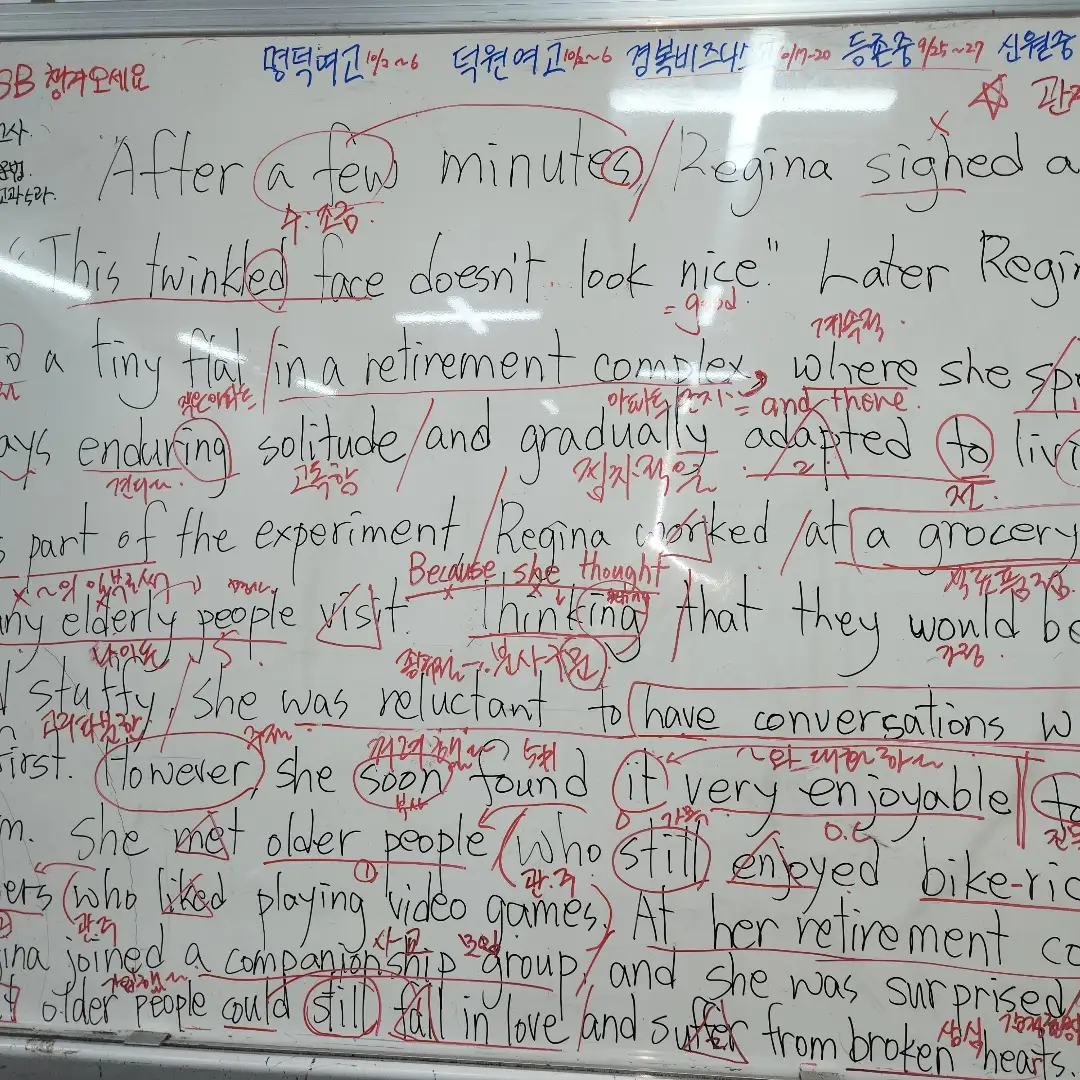 명덕여고 10/2~6 덕원여고 10/2~6 경북비즈니스고 10/17-20 등촌중 9/25~27 신월중
챙겨오세요
"After a few minutes, Regina sighed
수·조금.
"This twinkled face doesn't look nice." Later Regin
= good.
계속적.
a tiny flat in a retirement complex, where she sp
작은아파트 아파트 단지 = and there.
ays enduring solitude and gradually adapted to livi
견디~ 고독함 점차적으로 2 전.
part of the experiment, Regina worked at a grocery
~의 일부로서 Because she thought 식료품점.
any elderly people visit. Thinking that they would be
나이든 분사구문 걱정.
stuffy, she was reluctant to have conversations w
고리타분한 주저~ 꺼려했~ 5형 ~와 대화하~
first. However, she soon found it very enjoyable to
부사 가목 O.C 진목
m. She met older people who still enjoyed bike-ric
① 관.주
ers who liked playing video games. At her retirement co
관주 사교 모임
ina joined a companionship group, and she was surprised
가입했~
older people could still fall in love and suffer from broken hearts.
상심